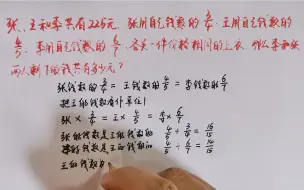 张、王和李共有225元,张用自己钱数的3/4,王用自己钱数的
4/5,李用自己钱数的6/7,各买一件价格相同的上衣,那么李和张
两人剩下的钱共有多少元?
张钱数的3/4=王钱数的4/5=李钱数的6/7
把王的钱数看作单位1
张×3/4=王×4/5=李×6/7
张的钱数是王的钱数的 4/5÷3/4=16/15
李的钱数是王的钱数的 4/5÷6/7=14/15
王的钱数